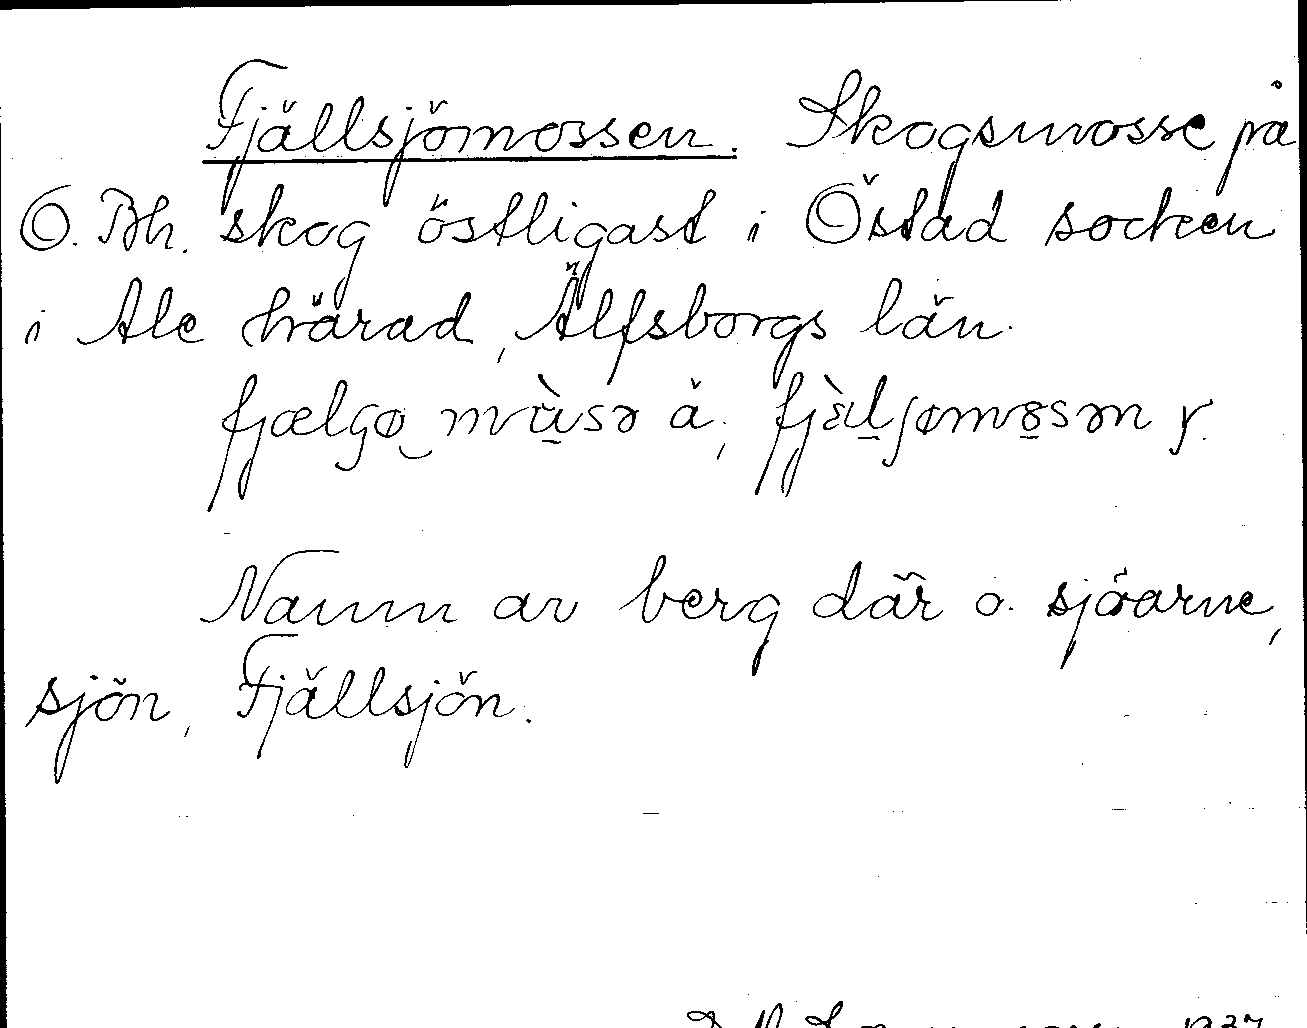 Fjällsjömossen. Skogsmosse på
Ö. Bh. skog östligast i Östad socken
i Ale härad, Älfsborgs län.
fjælsø mùsə ä;
Namn av berg där o. sjöarne,
sjön, Fjällsjön.
1937